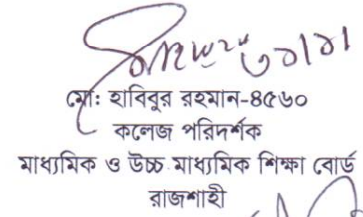 মো: হাবিবুর রহমান-৪৫৬০
কলেজ পরিদর্শক
মাধ্যমিক ও উচ্চ মাধ্যমিক শিক্ষা বোর্ড
রাজশাহী